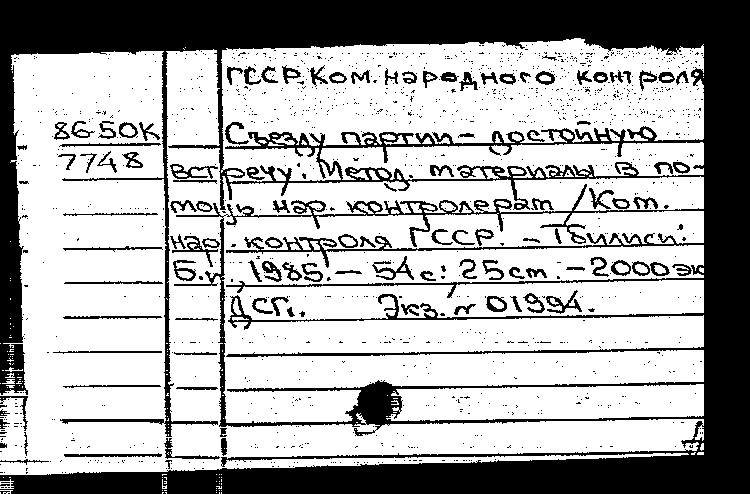 ГССР. Ком. народного контроля
86-50К Съезду партии – достойную
7748 встречу: Метод. материалы в по-
мощь нар. контролерам / Ком.
нар. контроля ГССР. – Тбилиси:
Б.и., 1985. – 54 с.; 25 см. – 2000 эк
ДСП. Экз. № 01994.